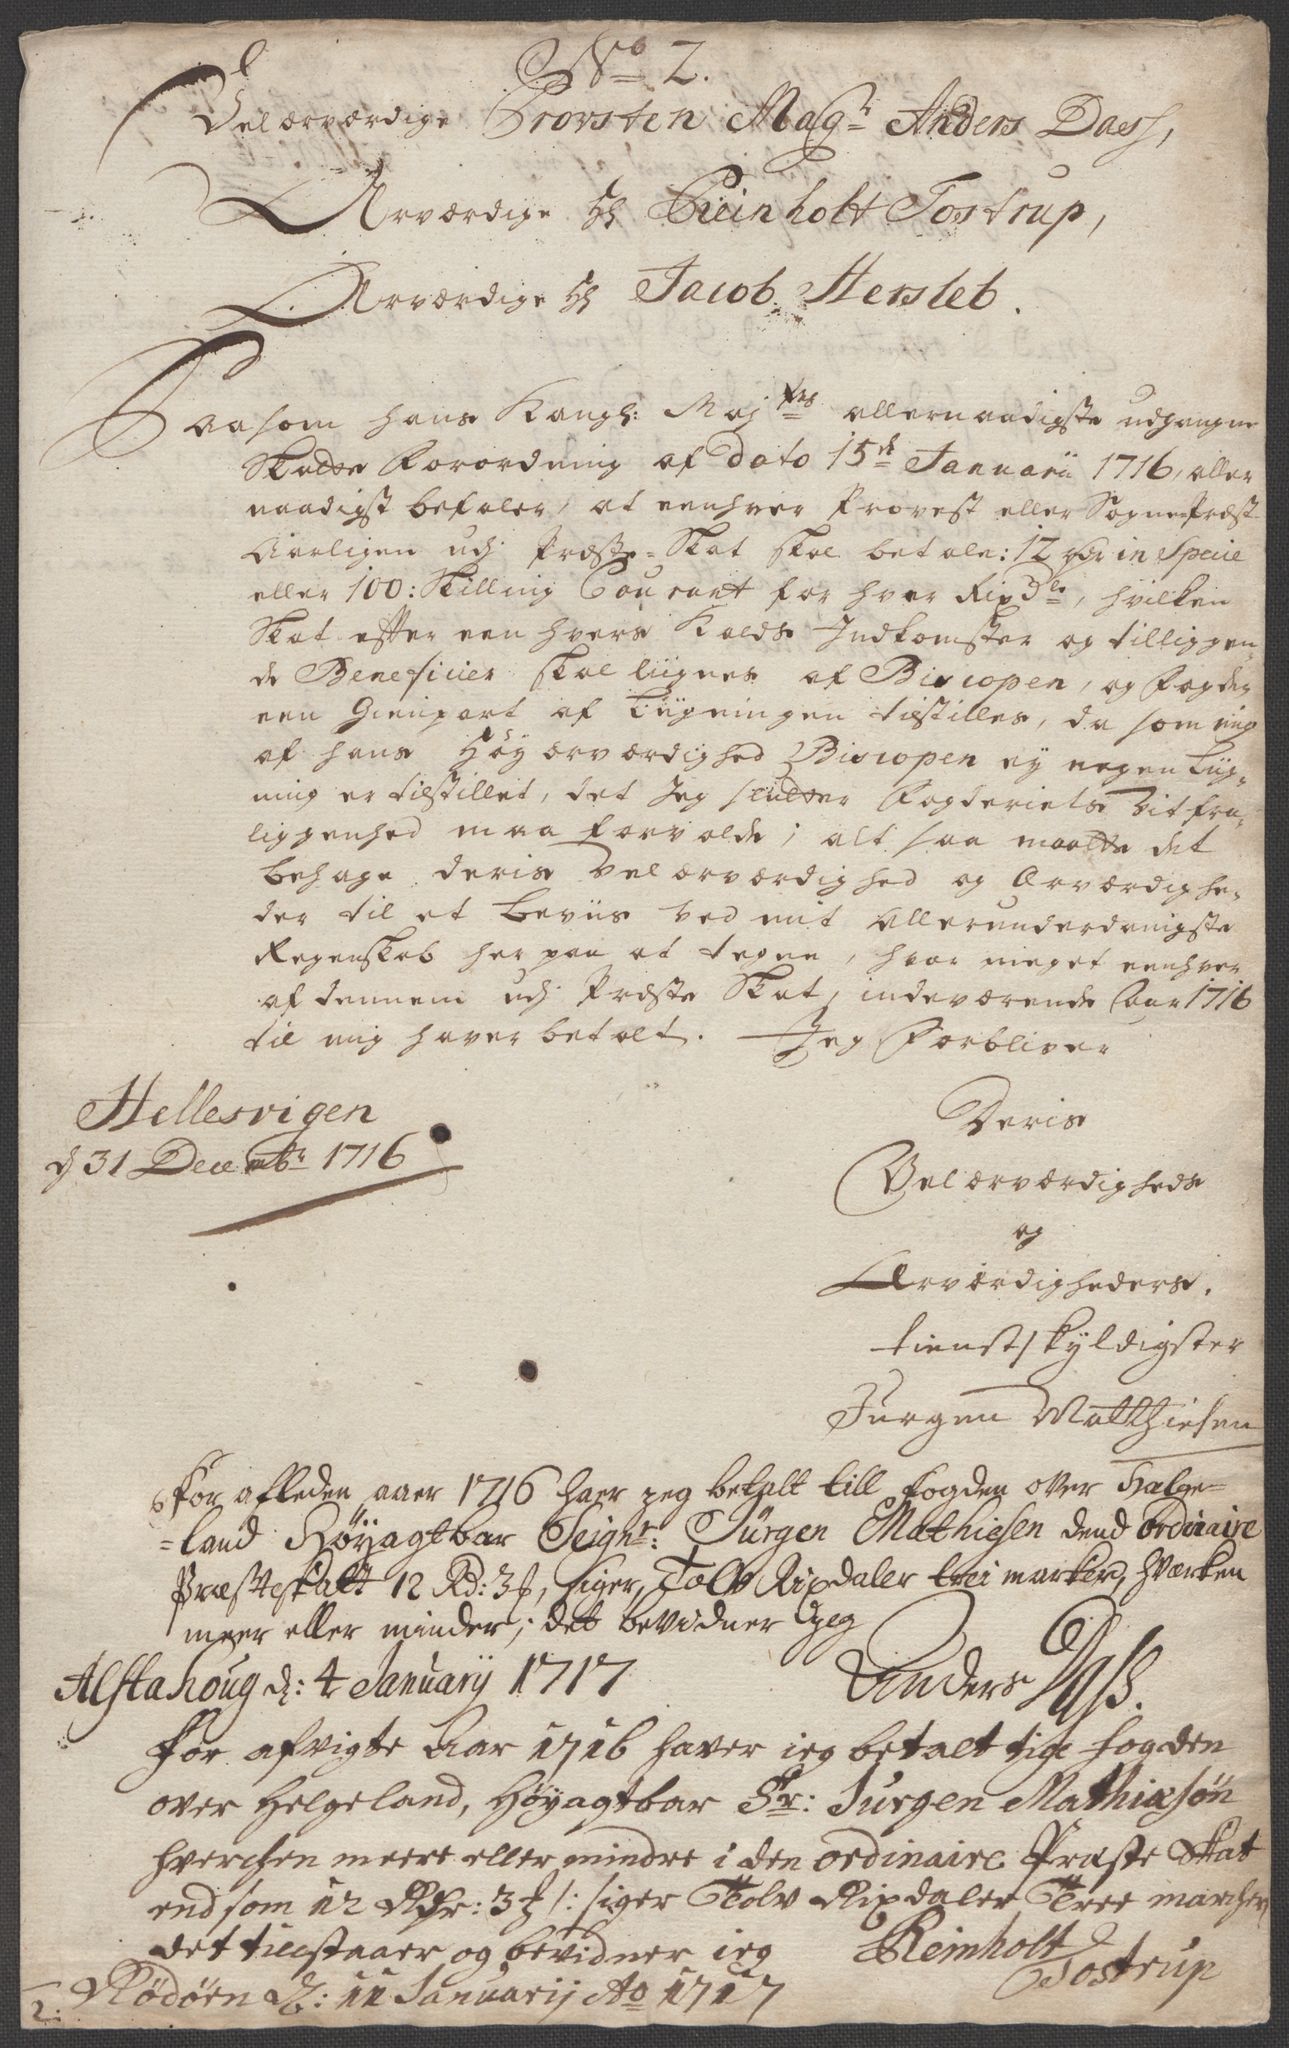 No 2.
Velærværdige Provsten Magr Anders Dass,
Ærværdige Hr Reinholt Tostrup,
Ærværdige Hr Jacob Hersleb.
Saasom hans Kongl: Majts allernaadigste udgangne
Skatte Forordning af Dato 15de Januarii 1716, aller
naadigst befaler, at eenhver Provest eller Sogne-Præst
Aarligen udj Præste-Skat skal betale: 12 Rdr in Specie
eller 100: Skilling Courant for hver Rixdlr, hvilken
Skat efter een hvers Kalds Indkomster og tilliggen-
de Beneficier skal liignes af Biscopen, og Fogden
een Gienpart af Liigningen tilstilles, da som mig
af hans Høyærværdighed Biscopen ey nogen Liig-
ning er tilstillet, det Jeg Fogderiets Vit fra-
liggenhed maa forvolde; alt saa maatte det
behage deris Velærværdighed og Ærværdighe-
der til et beviis ved mit Allerunderdanigste
Regenskab her paa at tegne, hvor meget eenhver
af dennem udj Præste Skat, indeværende Aar 1716
til mig haver betalt. Jeg Forbliver
Hellesvigen
d 31 Decembr 1716
Deris
Velærværdigheds
og
Ærværdigheders.
tienstskyldigster
Jurgen Matthiesen
For afleden aaer 1716 haer jeg betalt till fogden over Halge-
-land Høyagtbar Seignr: Jürgen Mathiesen dend ordinaire
Præsteskatt 12 Rd: 3 ſ, siger, Tolv Rixdaler trei marker, hværken
meer eller minder; det bevidner Jeg
Alstahoug d: 4 Januarij 1717 Anders Dass.
For afvigte Aar 1716 haver ieg betalt till fogden
over Helgeland, Høyagtbar Sr: Jurgen Mathiæsøn
hverchen meere eller mindre i den ordinaire Præste Skat
end som 12 Rdr: 3 ſ /: siger Tolv Rixdaler Tree marcher
det tilstaaer og bevidner ieg Reinholt
Rødøen d: 11 Januarij Ao 1717 Tostrup
2: